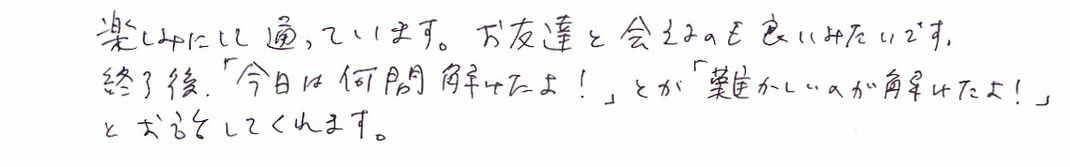 楽しみにして通っています。お友達と会えるのも良いみたいです。
終了後、「今日は何問解けたよ！」とか「難かしいのが解けたよ！」
とお話してくれます。